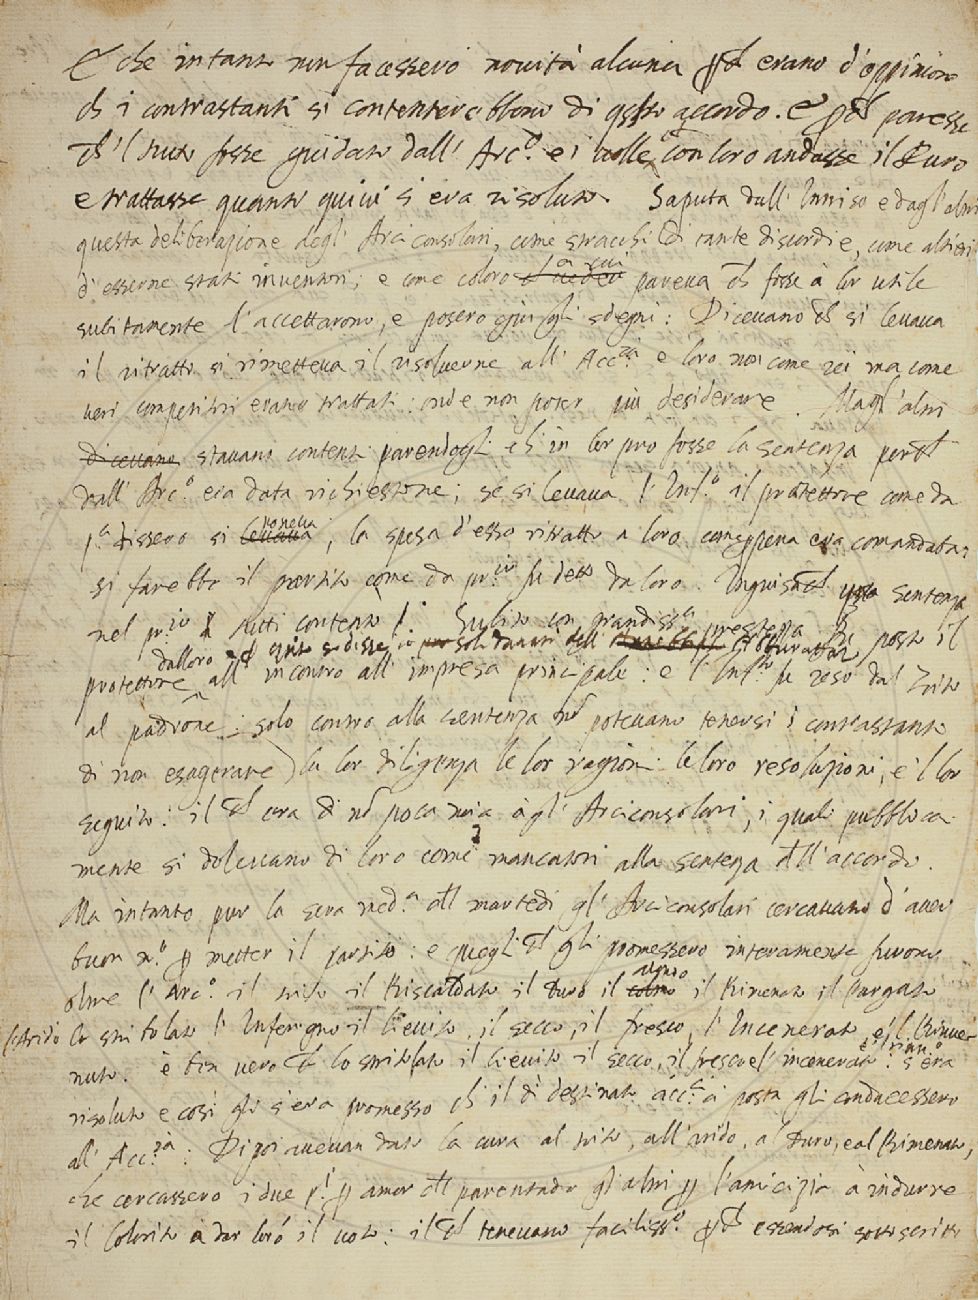 E che intanto non facessero novità alcuna p(er)ch(e) erano d'oppinion
ch(e) i contrastanti si contenterebbono di q(ue)sto accordo. E p(er)ch(e) paresse
ch(e)'l tutto fosse guidato dall' Arc.o e i volle con loro andasse il Duro
e trattasse quanto quivi si era risoluto. Saputa dall' Inniso e dagl'altri
questa deliberazione degl' Arciconsolari, come stracchi di tante discordie, come altieri
d'esserne stati inventori; e come coloro a cui pareva ch(e) fosse à lor utile
subitamente l'accettarono, e posero giù gli sdegni: Dicevano ch(e) si levava
il ritratto si rimetteva il risolverne all' Acc.za e loro non come rei ma come
veri competitori erano trattati: onde non poter più desiderare. Magl'altri
dicevano stavano contenti parendogli ch(e) in lor pro fosse la sentenza perch(e)
dall' Arc.o era data richiestone; se si levava l'Inf.o il protettore come da
p.a dissero si levava poneva, la spesa d'esso ritratto a loro come pena era comandata;
si farebbe il partito come da pr.io fu detto da loro. Inguisach(e) sentenza
nel pr.io tutti contentò. Subito con grandiss.a prestezza fu posto il
dalloro ch(e) quito si disse
protettore all' incontro all' impresa principale: e l'Inf.to fu reso dal Trito
al padrone: solo contro alla sentenza no(n) potevano tenersi i contrastanti
di non esagerare la lor diligenza le lor ragioni le loro resoluzioni, e'l lor
seguito: il ch(e) era di no(n) poca noia à gl' Arciconsolari, i quali pubblica
mente si dolevano di loro come mancatori alla sentenza dell'accordo.
Ma intanto pur la sera med.a del martedi gl' Arciconsolari cercavano d'aver
buon n.o p(er) metter il partito: e quegli ch(e) gli promessero interamente furono
oltre l'Arc.o il trito il Riscaldato il Duro il colmo il Rimenato il Purgato
l'Arido lo stritolato l'Inferigno il lievito, il secco, il fresco, l'Incenerato, e'l Rinve
nuto. è ben vero ch(e) lo stritolato il lievito il secco, il fresco e l'incenerato s'era
risoluto e così gli s'era promesso ch(e) il dì destinato acc.a à posta gli conducessero
all' Acc.za: Dipoi avevan dato la cura al trito, all'arido, al Duro, e al Rimenato,
che cercassero i due p.i p(er) amor del parentado gl'altri p(er) l'amicizia à indurre
il Colorito à dar loro il voto: il ch(e) tenevano faciliss.o p(er)ch(e) essendosi sottoscritto